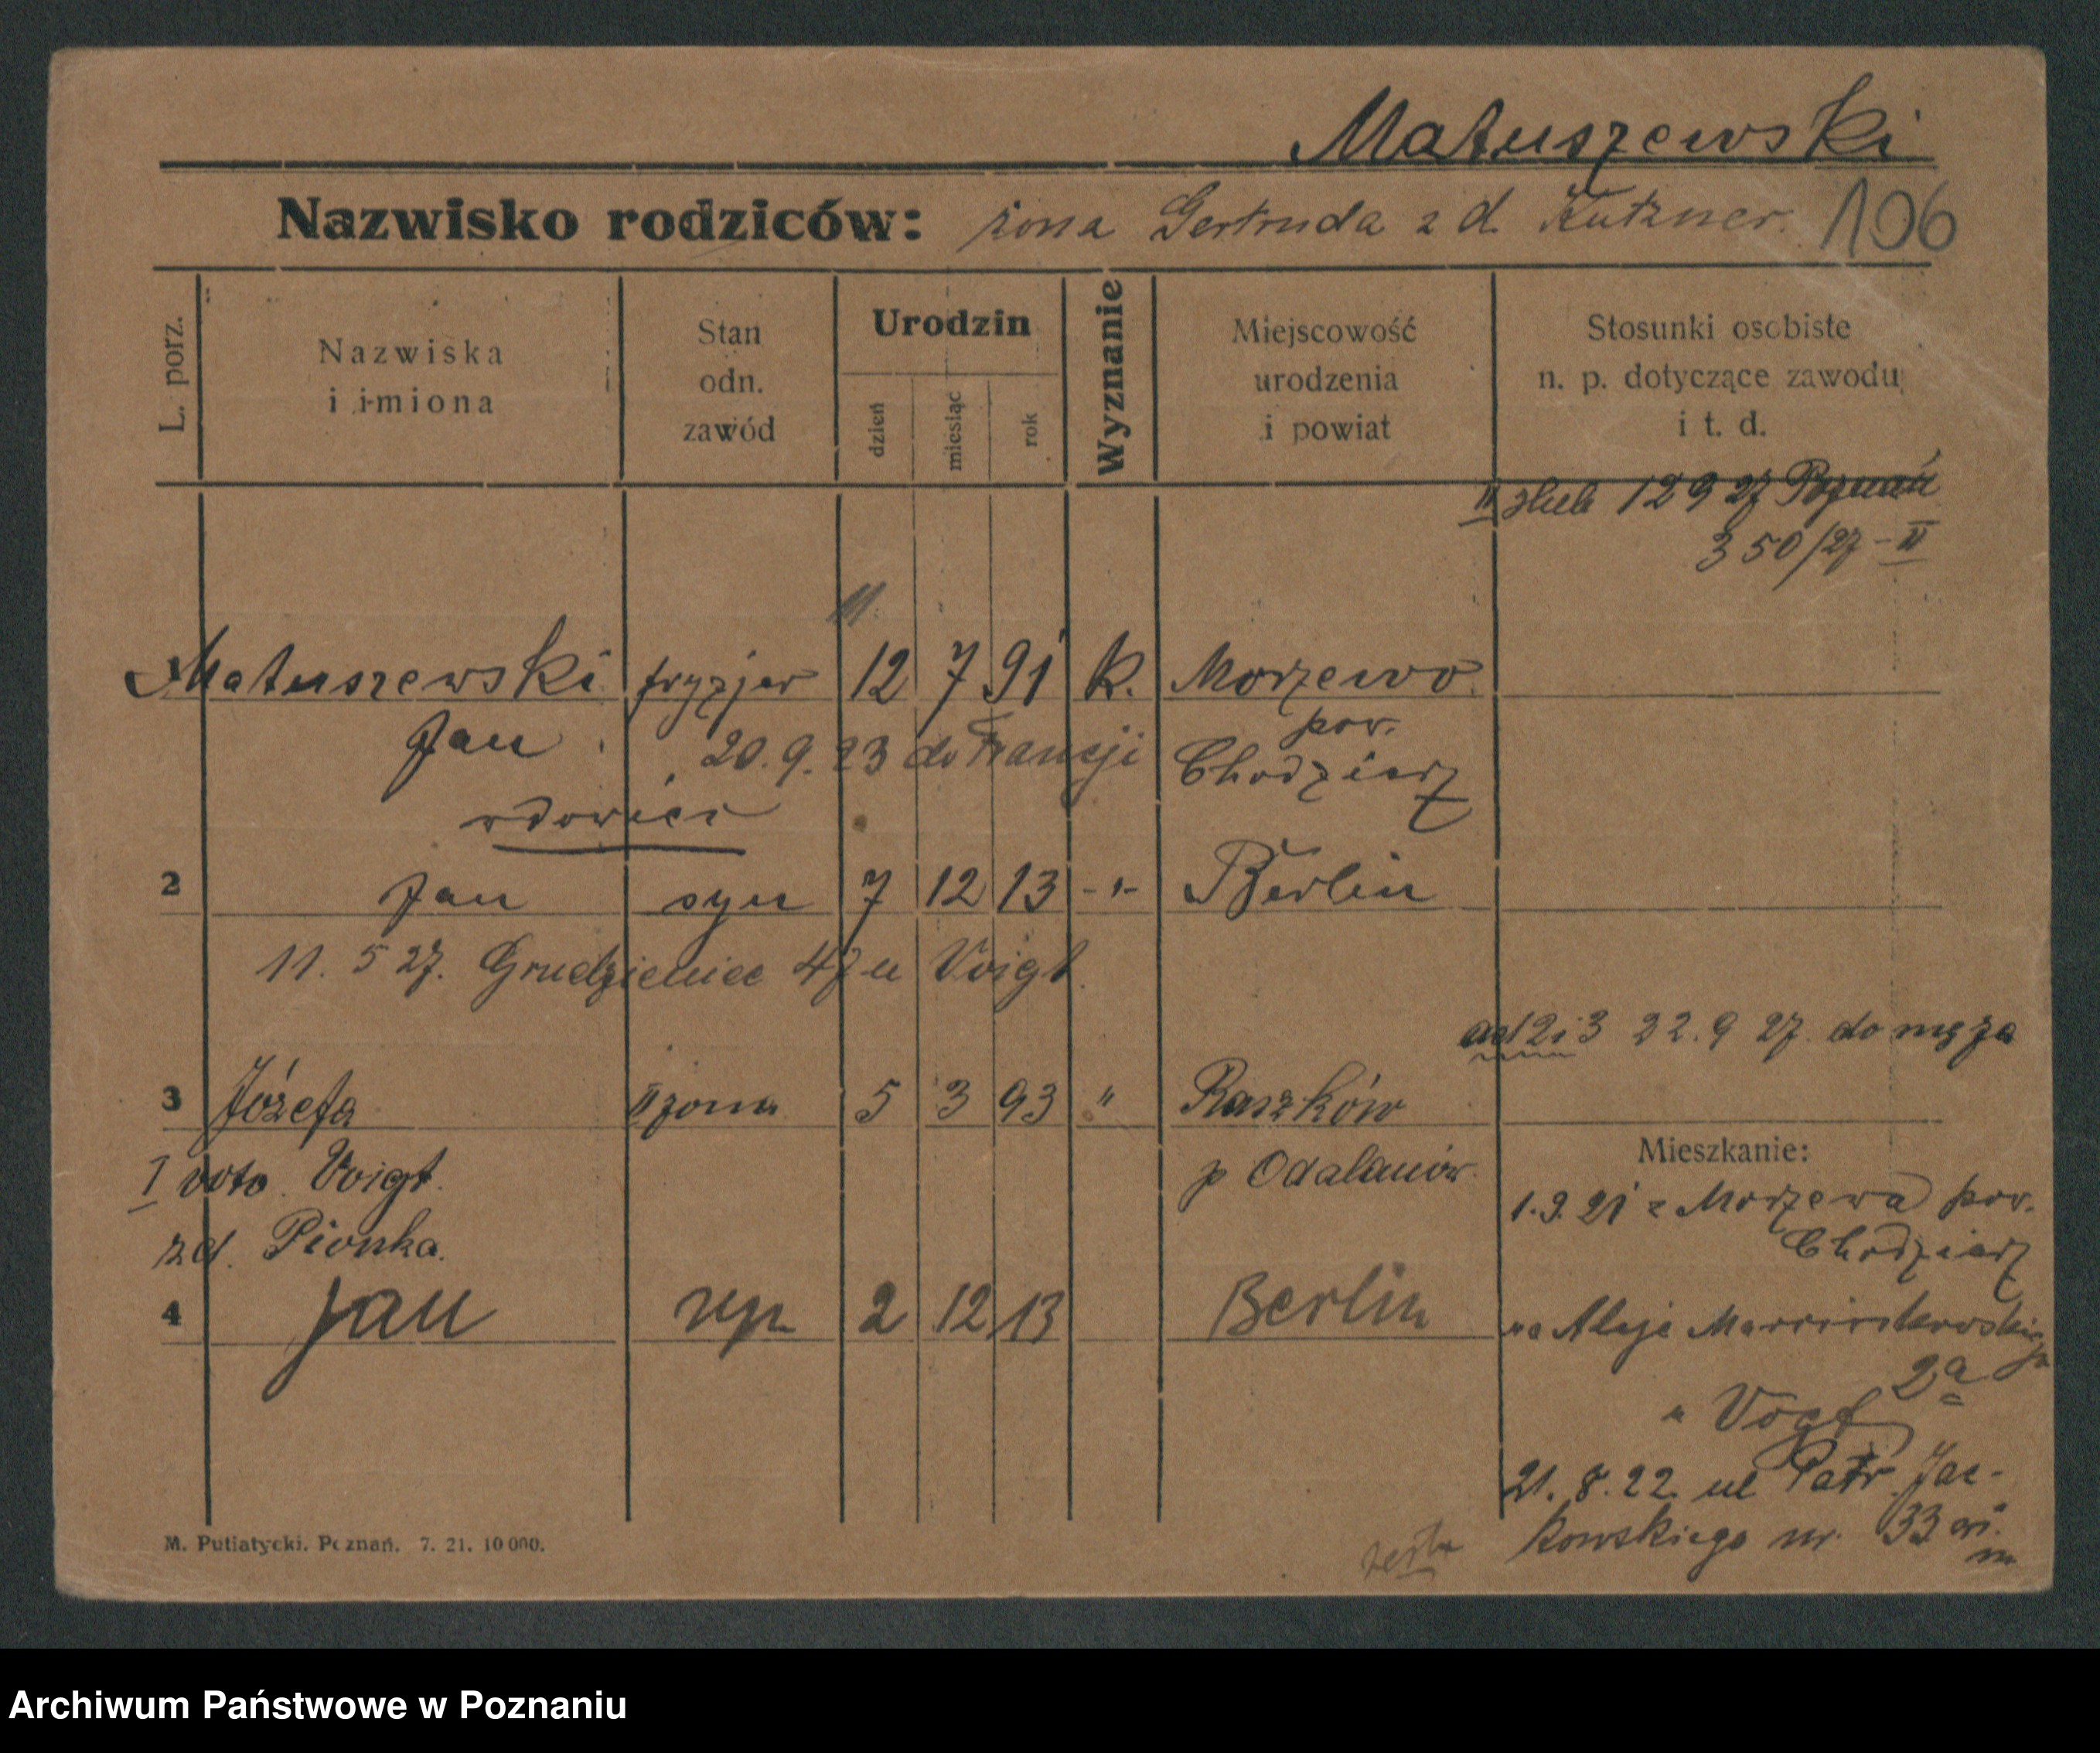 Matuszewski
Nazwisko rodziców: żona Gertruda z d. Kutzner. 106
L. porz.
Nazwiska
i imiona
Stan
odn.
zawód
Urodzin
dzień
miesiąc
rok
Wyznanie
Miejscowość
urodzenia
i powiat
Stosunki osobiste
n. p. dotyczące zawodu
i t. d.
II ślub 12 9 27 Poznań
350/27 - II
11.
Matuszewski fryzjer 12 7 91 k. Morzewo
Jan 20. 9. 23 do Francji pow.
Chodzież
wdowiec
2 Jan syn 7 12 13 -"- Berlin
11. 5 27. Grudzieniec 47 u Voigt.
ad 2 i 3 22. 9 27. do męża
3 Józefa II żona 5 3 93 " Raszków
I voto Voigt. p Odalanów
zd. Pionka.
Mieszkanie:
1. 9. 21 z Morzewa pow.
Chodzież
4 Jan syn 2 12 13 Berlin
na Aleje Marcinkowskiego
2a
u Vogt
21. 8. 22 ul Patr. Jac-
kowskiego nr. 33
M. Putiatycki. Poznań. 7. 21. 10 000.
Archiwum Państwowe w Poznaniu